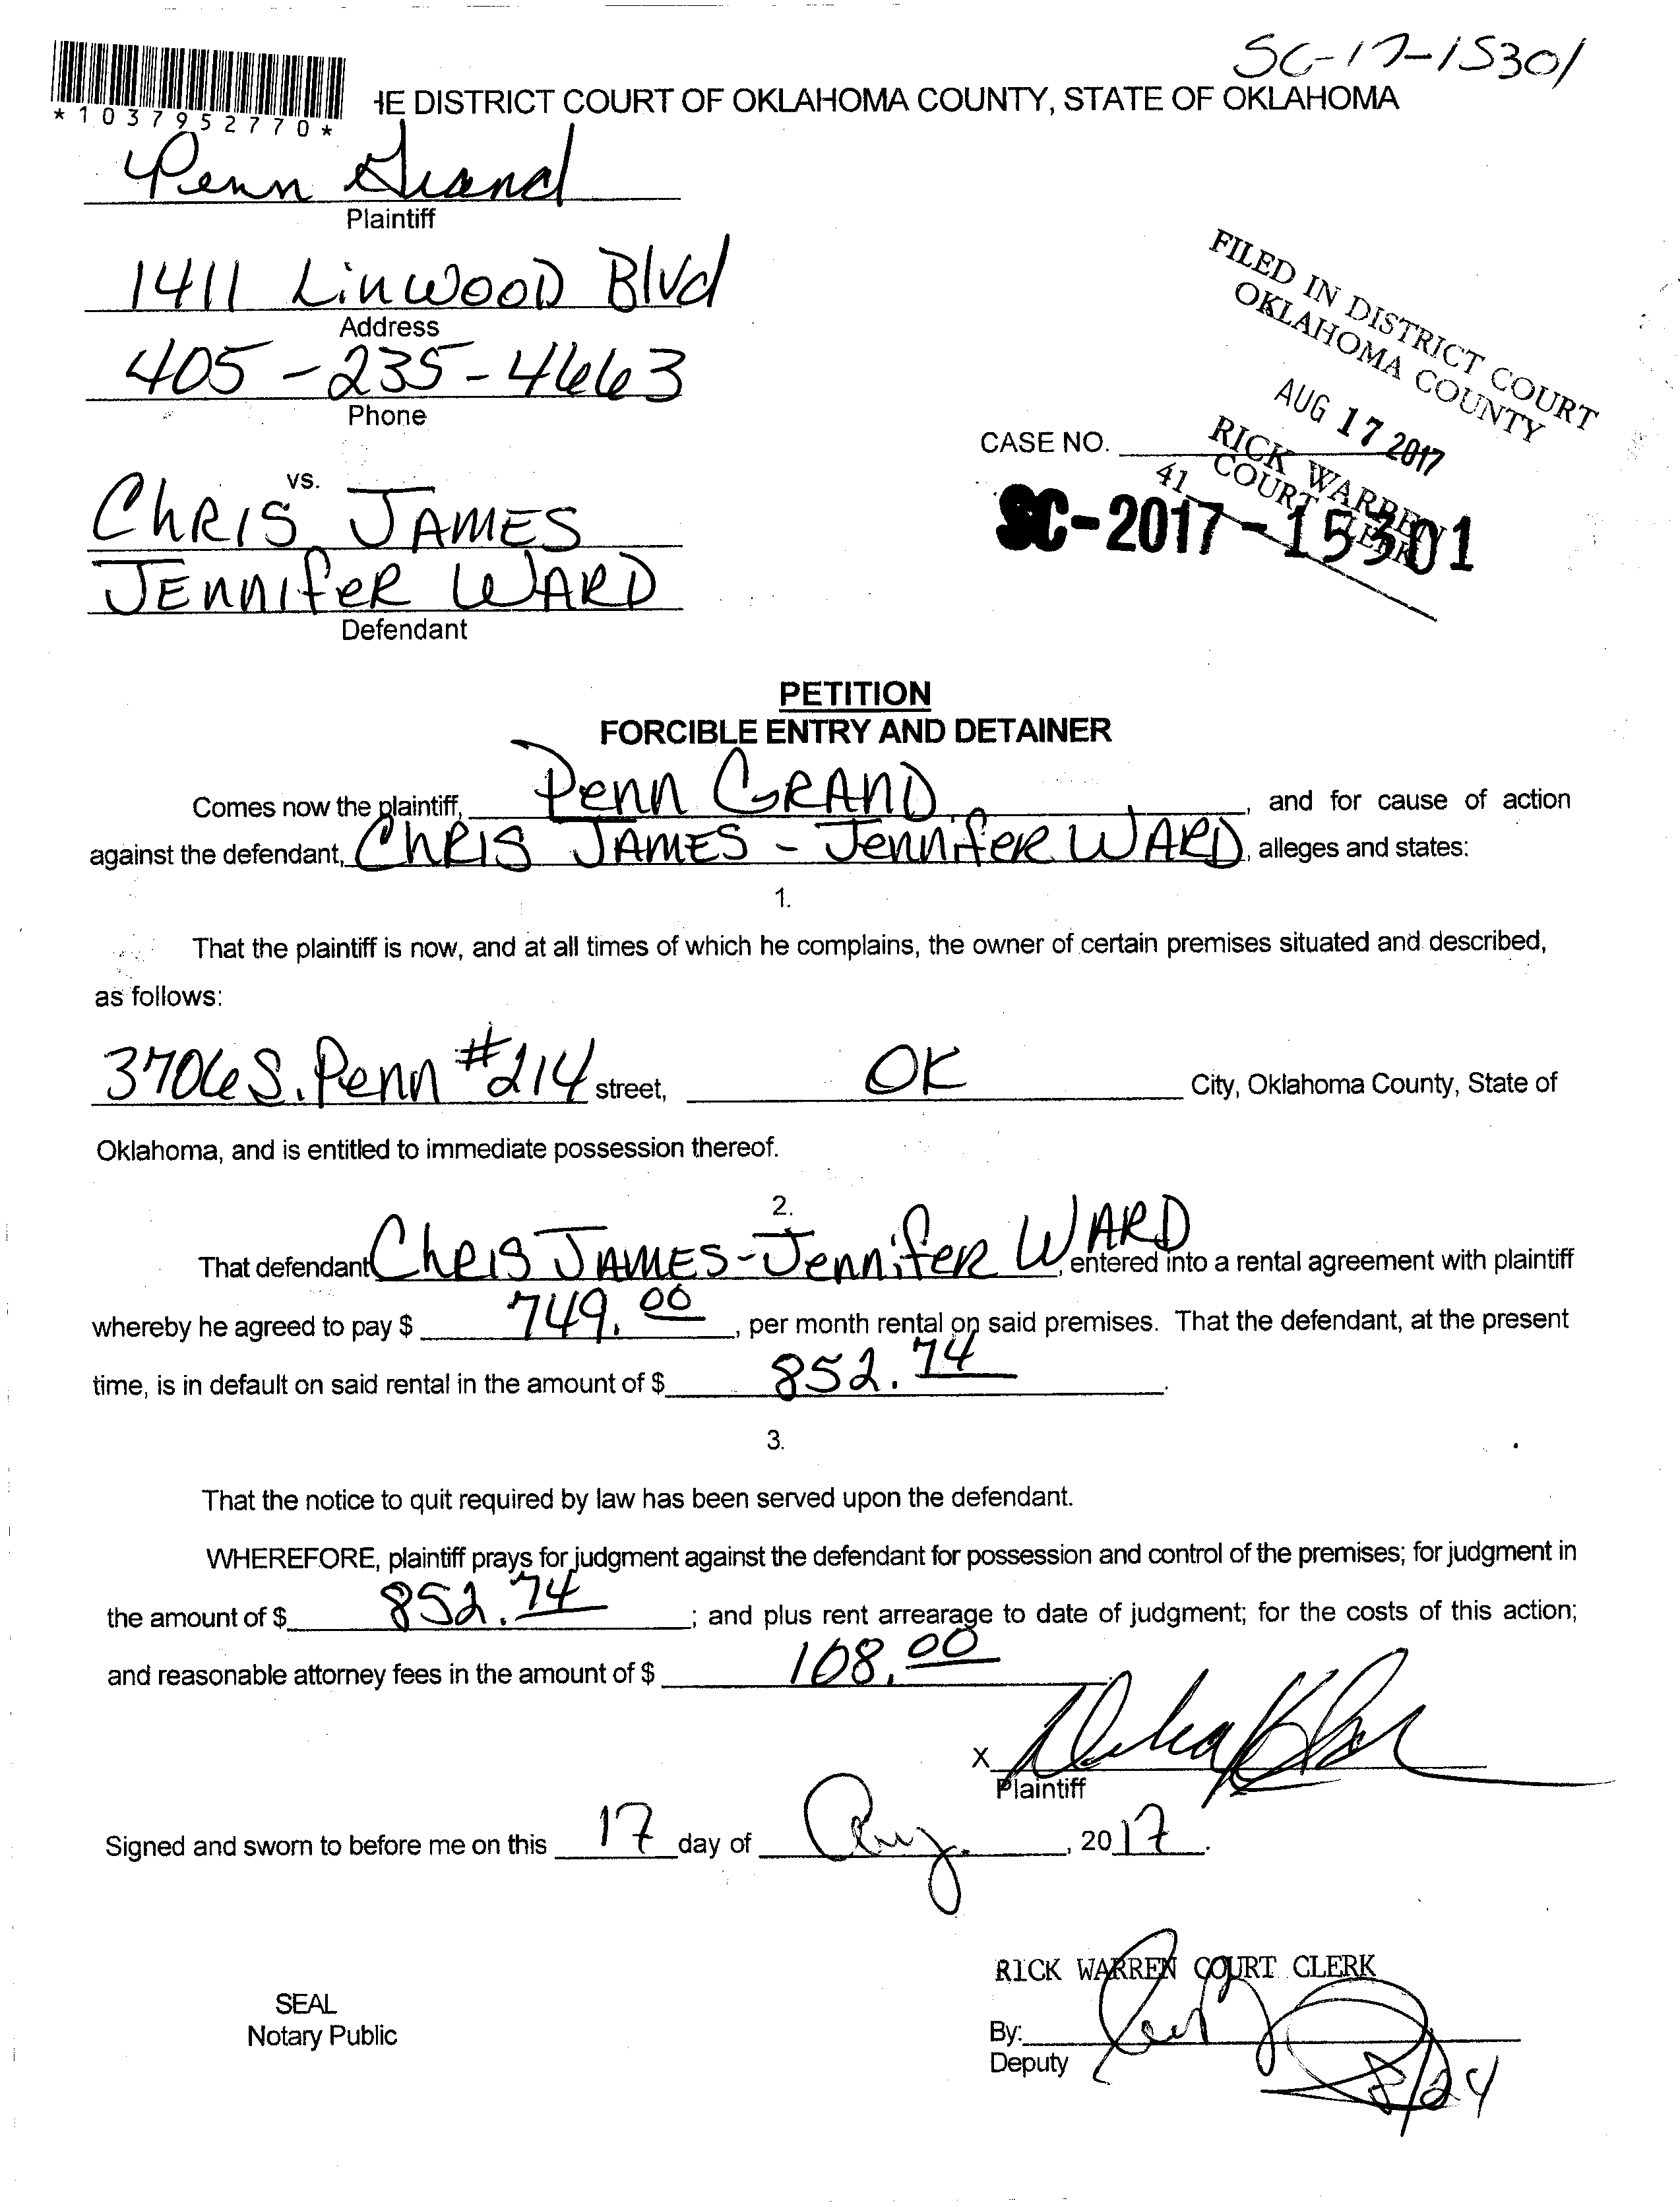 SC-17-15301
*1037952770*
HE DISTRICT COURT OF OKLAHOMA COUNTY, STATE OF OKLAHOMA
Penn Grand
Plaintiff
1411 Linwood Blvd
Address
405-235-4663
Phone
FILED IN DISTRICT COURT
OKLAHOMA COUNTY
AUG 17 2017
RICK WARREN
COURT CLERK
41
CASE NO.
SC-2017-15301
vs.
Chris James
Jennifer Ward
Defendant
PETITION
FORCIBLE ENTRY AND DETAINER
Comes now the plaintiff, Penn Grand, and for cause of action
against the defendant, Chris James - Jennifer Ward, alleges and states:
1.
That the plaintiff is now, and at all times of which he complains, the owner of certain premises situated and described,
as follows:
3706 S. Penn #214 street, OK City, Oklahoma County, State of
Oklahoma, and is entitled to immediate possession thereof.
2.
That defendant Chris James-Jennifer Ward, entered into a rental agreement with plaintiff
whereby he agreed to pay $ 749.00, per month rental on said premises. That the defendant, at the present
time, is in default on said rental in the amount of $ 852.74.
3.
That the notice to quit required by law has been served upon the defendant.
WHEREFORE, plaintiff prays for judgment against the defendant for possession and control of the premises; for judgment in
the amount of $ 852.74; and plus rent arrearage to date of judgment; for the costs of this action;
and reasonable attorney fees in the amount of $ 108.00
X
Plaintiff
Signed and sworn to before me on this 17 day of Aug., 2017.
RICK WARREN COURT CLERK
SEAL
Notary Public
By:
Deputy
8/24